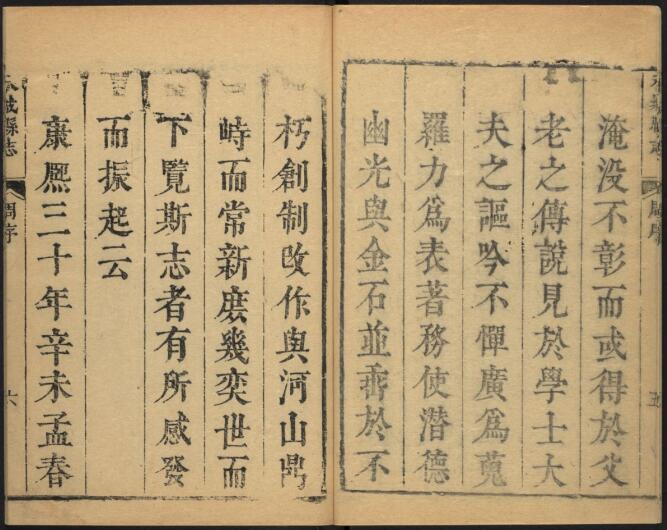 淹没不彰而或得於父
老之傳說見於學士大
夫之謳吟不憚廣爲蒐
羅力爲表著務使潛德
幽光與金石並垂於不
朽創制改作與河山鼎
峙而常新庶幾奕世而
下覽斯志者有所感發
而振起云
康熙三十年辛未孟春
城縣志
周序
六